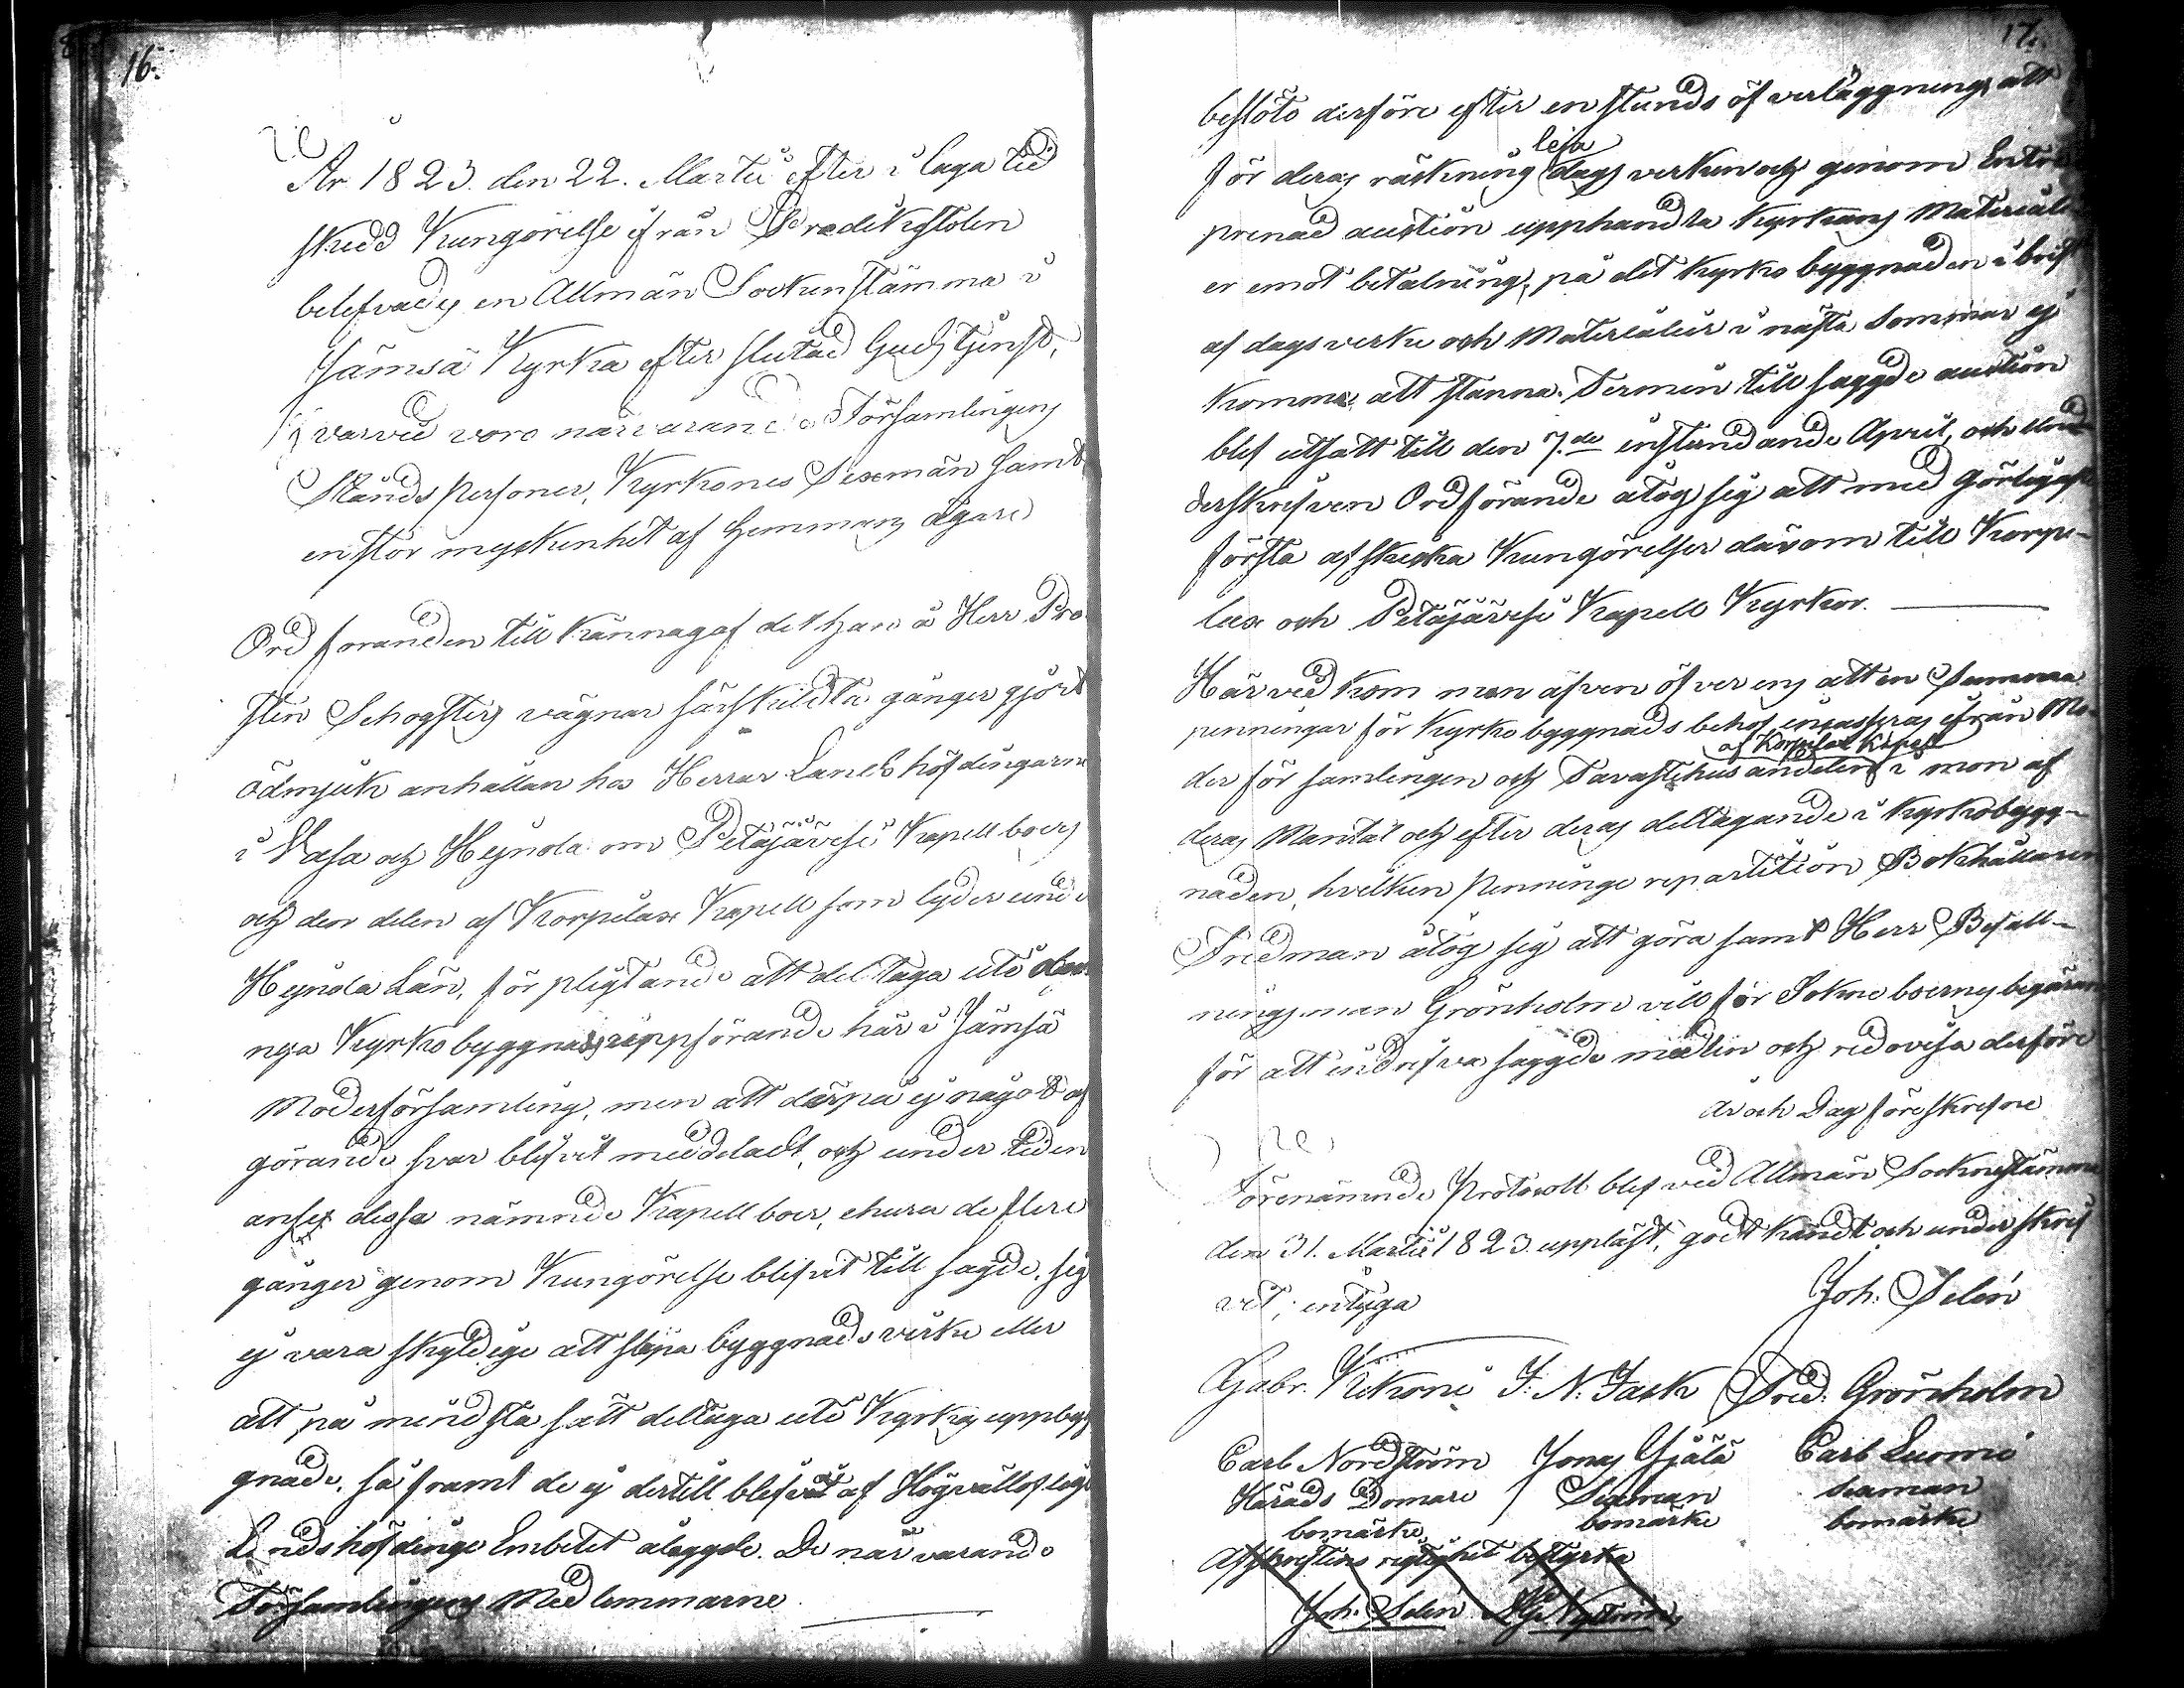 16.
År 1823. den 22. Martii efter i laga tid
skedd Kungörelse ifrån Predikstolen
belefvades en Allmän Sockenstämma i
Jämsä Kyrka efter slutad Gudstjenst,
varvid voro närvarande Församlingens
Stånds personer, Kyrkones Sexmän samt
en stor myckenhet af Hemmans ägare
Ordföranden till känna gaf det han å Herr Pro-
sten Schogsters vägnar särskildta gånger gjort
ödmjuk anhållan hos Herrar Landshöfdingarne
i Vasa och Heinola om Petäjävesi Kapellboers
och den delen af Korpilax Kapell som lyder unde
Heinola Län, förpligtande att deltaga uti
nya Kyrko byggnads uppförande här i Jämsä
Moderförsamling, men att därpå ej något af
görande svar blifvit meddeladt, och under tiden
anse dessa nämnde Kapellboer, ehuru de flere
gånger genom Kungörelse blifvit till sagde, sig
ej vara skyldige att släpa byggnads virke eller
att på mindsta sätt deltaga uti Kyrkans uppbyg
gnade, så framt de ej dertill blifvit af Högvällofliga
Landshöfdinge Embetet ålagde. De närvarande
Församlingens Medlemmarne
17.
beslöto derföre efter en stunds öfverläggning, att
leja
för deras räkning dags verken och genom Entre
prenad auction upphandla Kyrkans Materiali-
er emot betalning, på det Kyrko byggnaden i brist
af dagsverke och Materialier i nästa Sommar ej
komme att stanna. Termin till sagde auction
blef utsatt till den 7.de instundande April, och un
derskrifven Ordförande åtog sig att med görligaste
första afskicka Kungörelser därom till Korpi-
lax och Petäjävesi Kapell Kyrkor.
Härvid kom man äfven öfverens att en Summa
penningar för Kyrko byggnads behof incasseras ifrån Mo-
af Korpilax Kapell
der församlingen och Tavastehus andelen i mon af
deras Mantal och efter deras deltagande i Kyrkobygg-
naden, hvilken Penninge repartition Bokhållaren
Fredman åtog sig att göra samt Herr Befall-
ningsman Grönholm vill för Soknebornes begäran
för att indrifva sagde medlen och redovisa derföre
År och Dag föreskrefne
Förenämnde Protocoll blef vid Allmän Socknestämma
den 31. Martii 1823. uppläst, godtkändt och underskrif
vit; intyga
Joh. Selin
Gabr. Kekoni J. N. Fack Fred. Grönholm
Carl Nordström Jonas Yijälä Carl Luomi
Härads Domare Sexman Sexman
bomärke bomärke bomärke
Afskriftens riktighet bestyrka
Joh. Selin Nyström